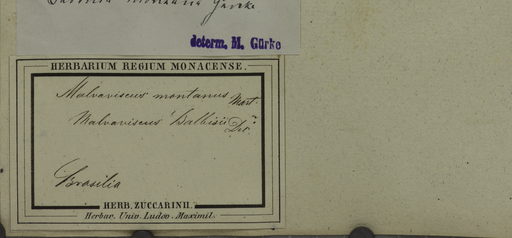 montana Gürke
determ. M. Gürke
HERBARIUM REGIUM MONACENSE.
Malvaviscus montanus Mart.
Malvaviscus Balbisii
Brasilia
HERB. ZUCCARINII.
Herbar. Univ. Ludov. Maximil.